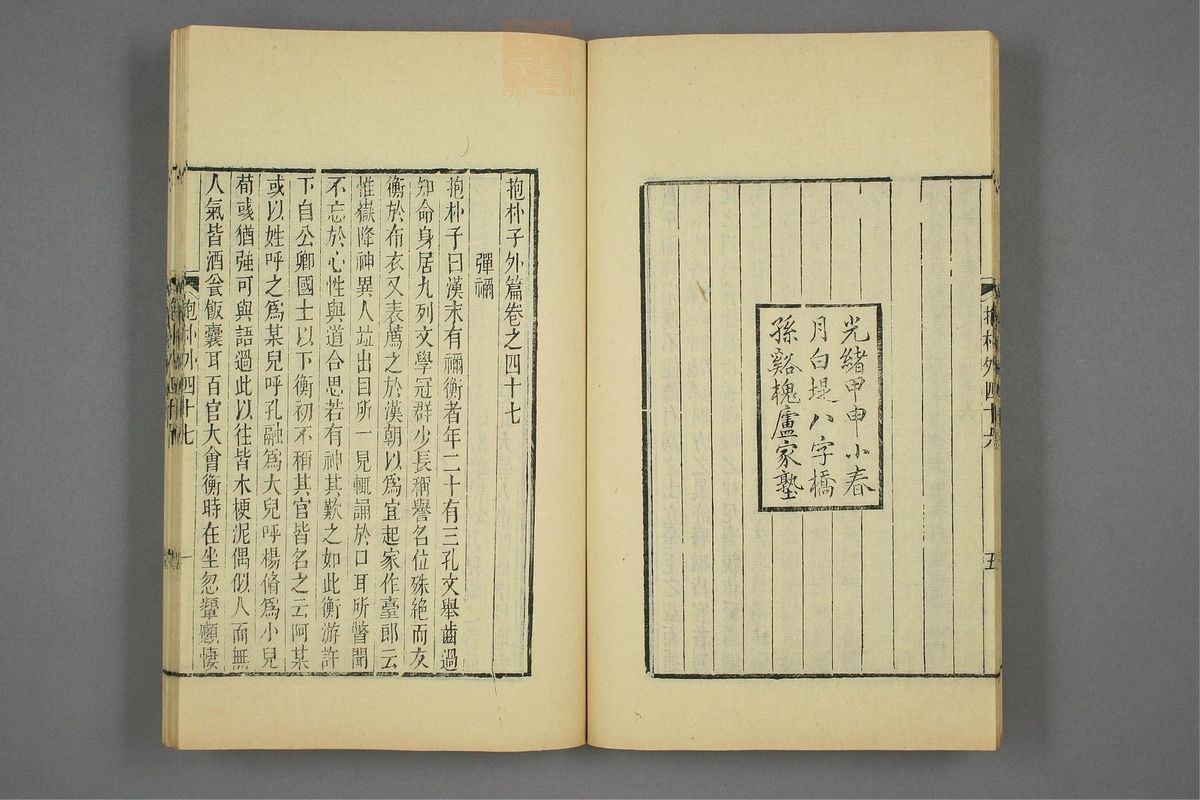 抱朴外四十六
五
光緒甲申小春
月白堤八字橋
孫谿槐廬家塾
抱朴子外篇卷之四十七
彈禰
抱朴子曰漢末有禰衡者年二十有三孔文舉齒過
知命身居九列文學冠群少長稱譽名位殊絕而友
衡於布衣又表薦之於漢朝以爲宜起家作臺郎云
惟嶽降神異人竝出目所一見輒誦於口耳所瞥聞
不忘於心性與道合思若有神其歎之如此衡游許
下自公卿國士以下衡初不稱其官皆名之云阿某
或以姓呼之爲某兒呼孔融爲大兒呼楊脩爲小兒
荀彧猶強可與語過此以往皆木梗泥偶似人而無
人氣皆酒瓮飯囊耳百官大會衡時在坐忽顰顣悽
抱朴外四十七
一